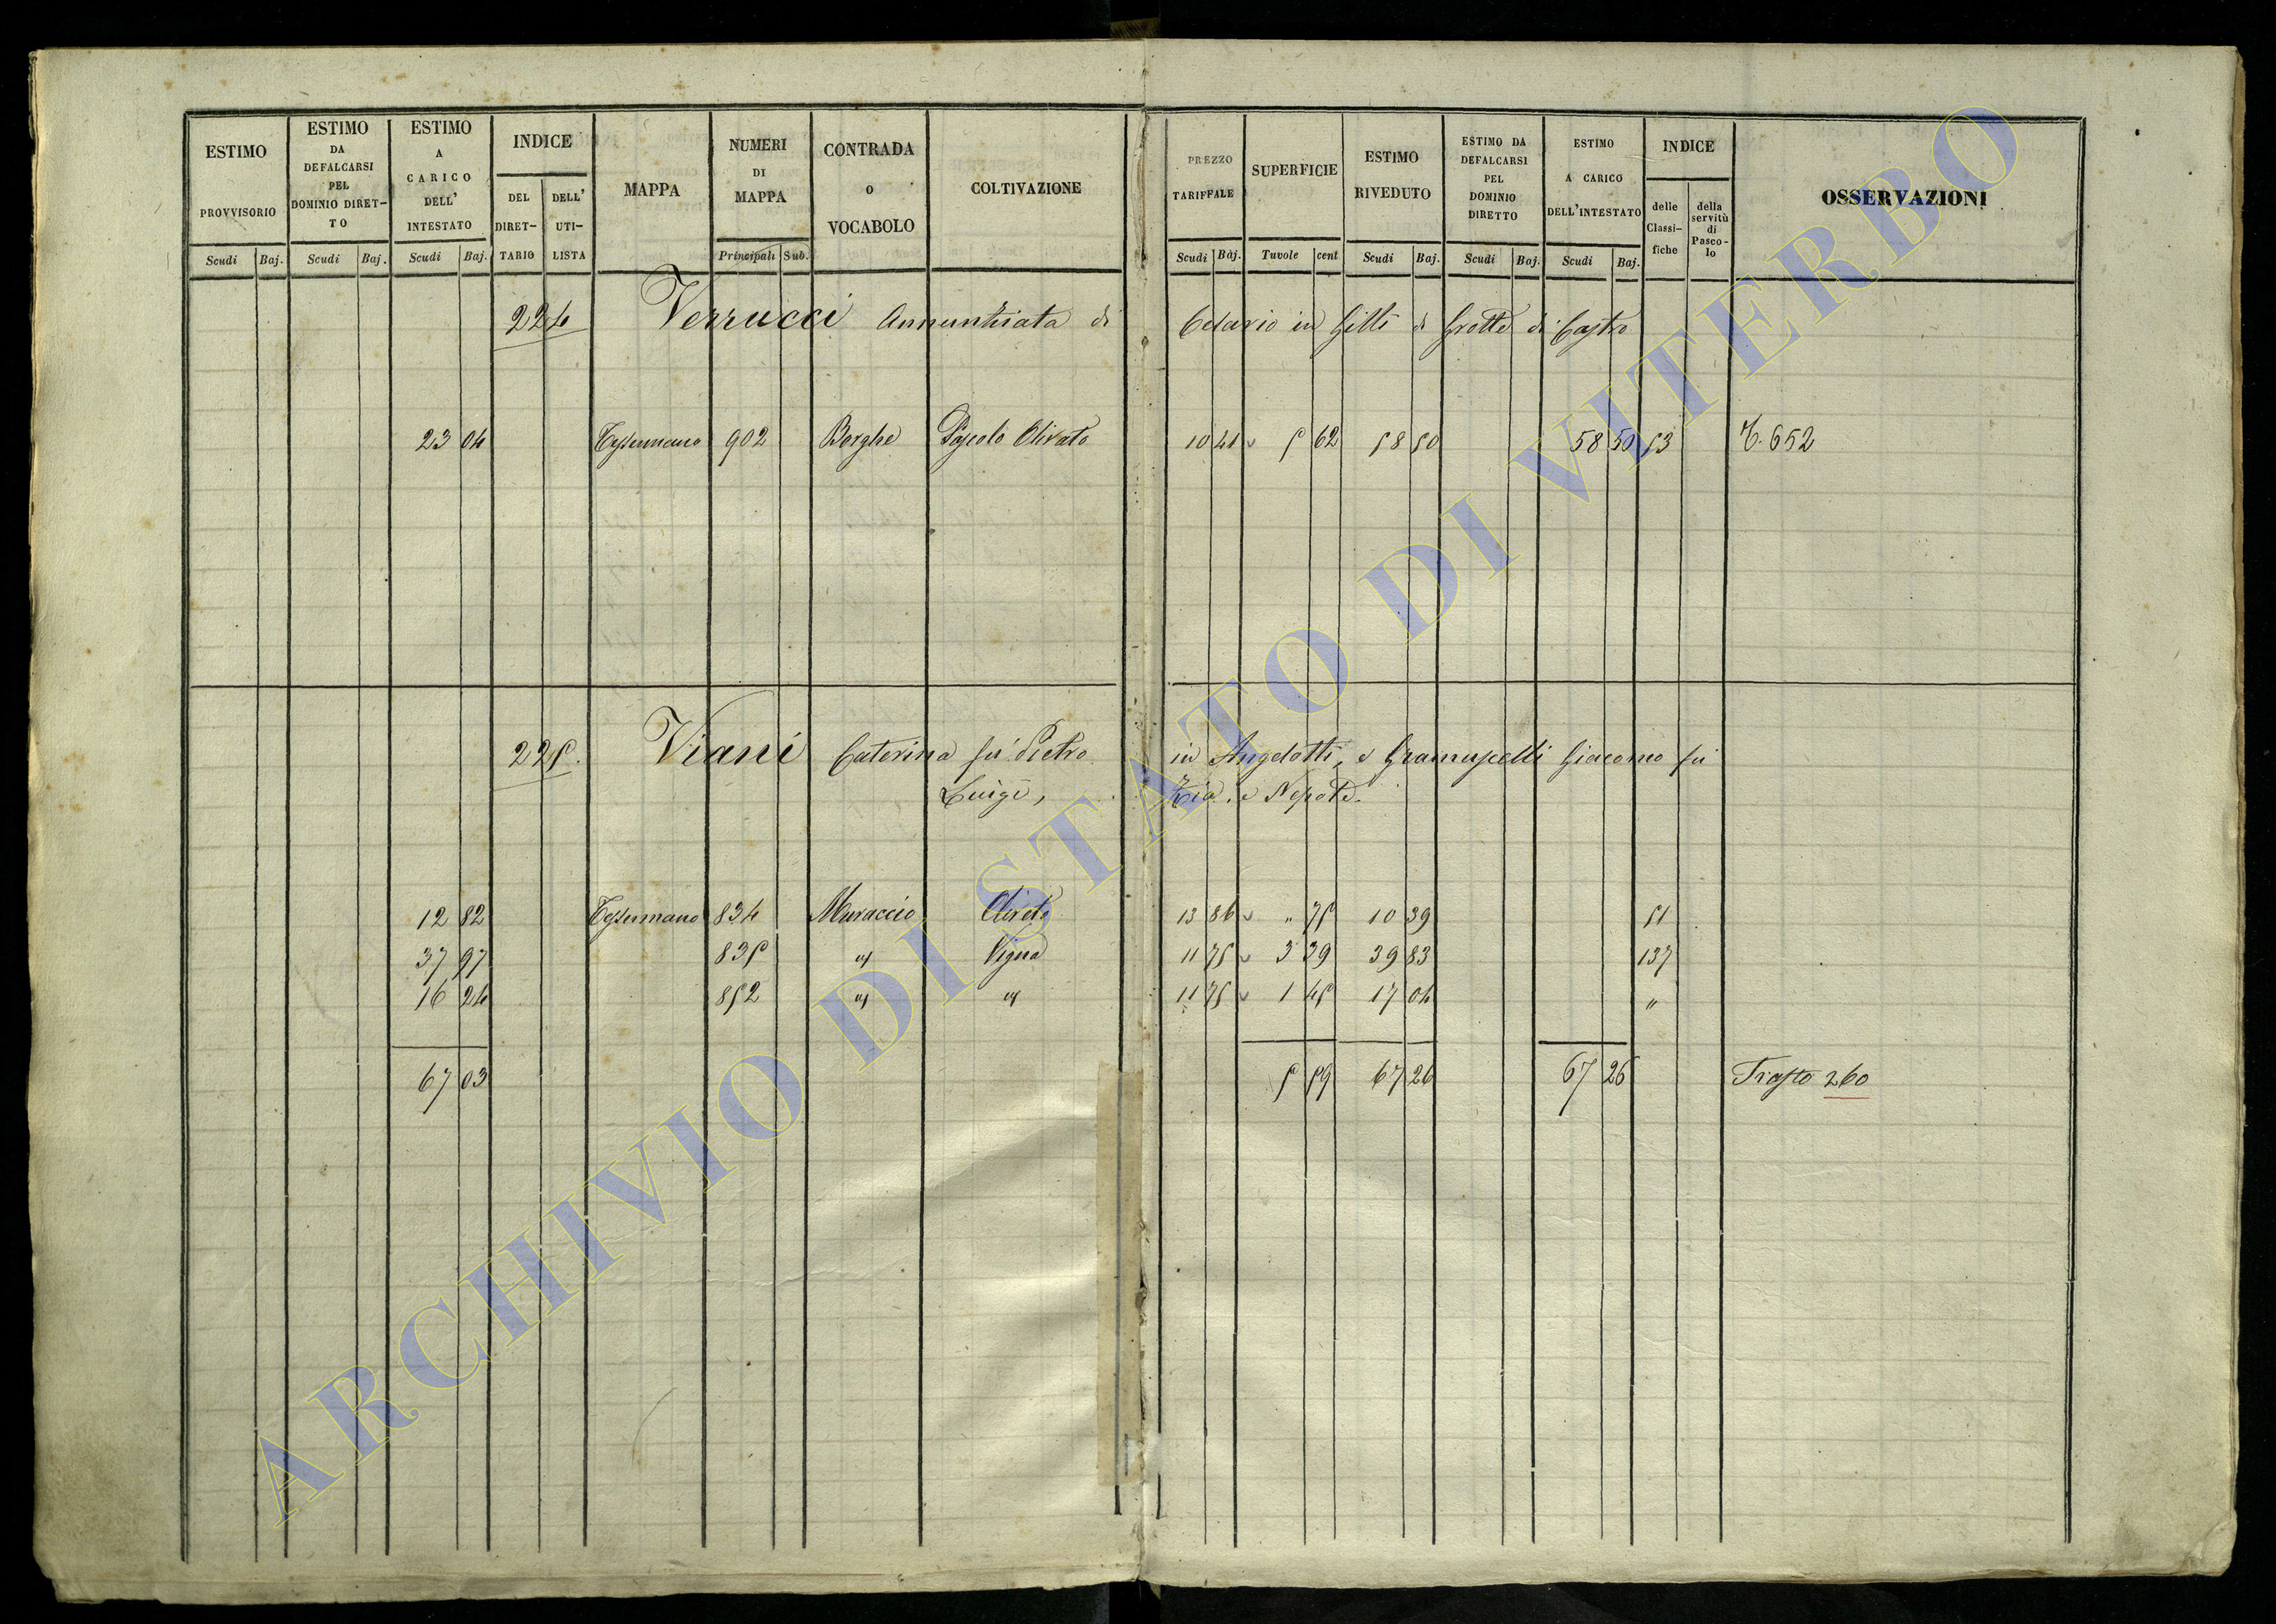 ESTIMO PROVVISORIO Scudi Baj.
ESTIMO DA DEFALCARSI PEL DOMINIO DIRET-TO Scudi Baj.
ESTIMO A CARICO DELL' INTESTATO Scudi Baj.
INDICE DEL DIRET-TARIO DELL' UTI-LISTA
MAPPA
NUMERI DI MAPPA Principali Sub.
CONTRADA O VOCABOLO
COLTIVAZIONE
PREZZO TARIFFALE Scudi Baj.
SUPERFICIE Tavole cent
ESTIMO RIVEDUTO Scudi Baj.
ESTIMO DA DEFALCARSI PEL DOMINIO DIRETTO Scudi Baj.
ESTIMO A CARICO DELL'INTESTATO Scudi Baj.
INDICE delle Classi-fiche della servitù di Pasco-lo
OSSERVAZIONI
224 Verrucci Annunziata di Celario in Gilli di Grotte di Castro
23 04 Tessennano 902 Borghe Pascolo Olivato 10 41 5 62 58 50 58 50 53 T. 652
225. Viani Caterina fu Pietro in Angelotti, e Giacomo fu
Luigi, Zia, e Nepote.
12 82 Tessennano 834 Muraccio Oliveto 13 86 " 75 10 39 51
37 97 835 " Vigna 11 75 3 39 39 83 137
16 24 852 " " 11 75 1 45 17 04 "
67 03 5 59 67 26 67 26 Trasto 260
ARCHIVIO DI STATO DI VITERBO